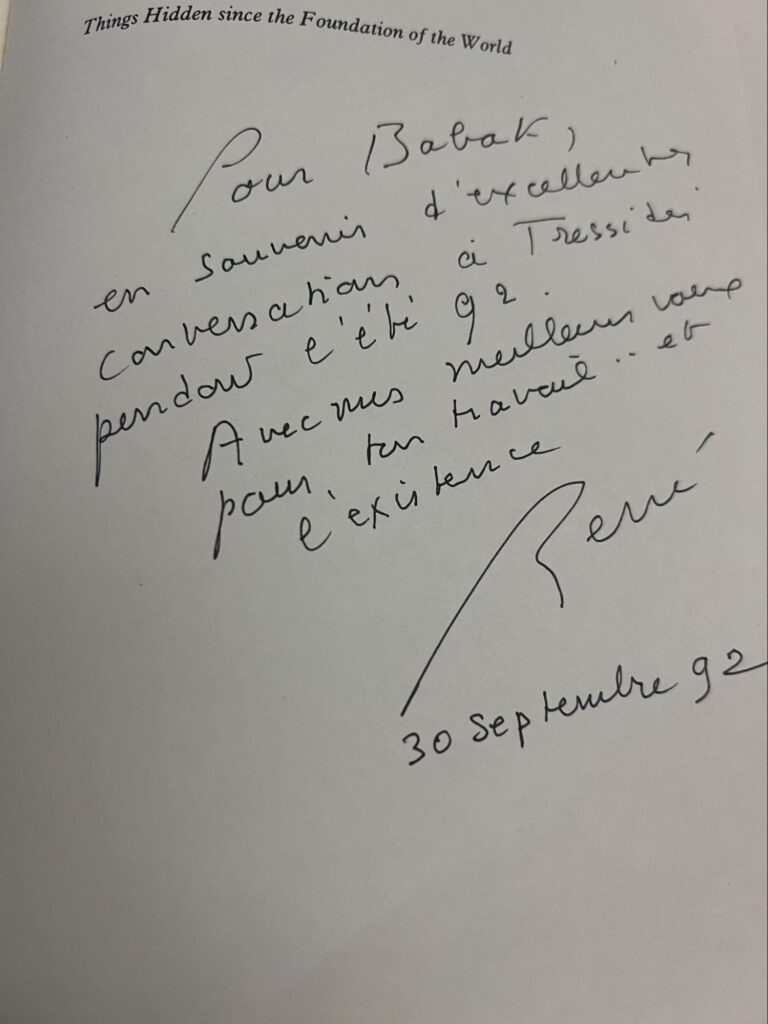 Things Hidden since the Foundation of the World
Pour Babak,
en souvenir d'excellentes
conversations à Tressider
pendant l'été 92.
Avec mes meilleurs voeux
pour ton travail.. et
l'existence
René
30 Septembre 92